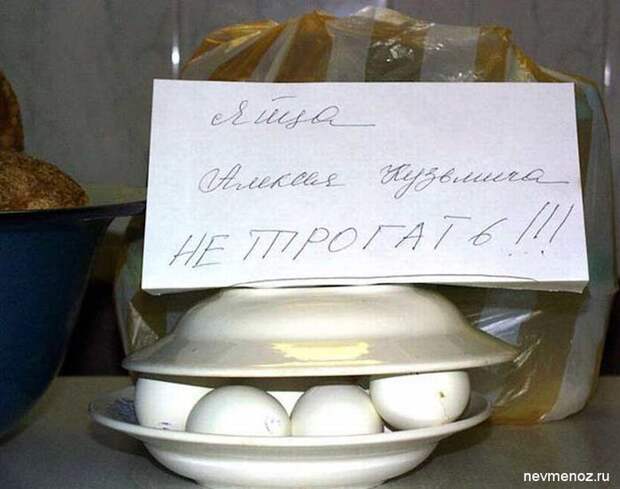 Яйца
Алексея Кузьмича
НЕ ТРОГАТЬ!!!
nevmenoz.ru